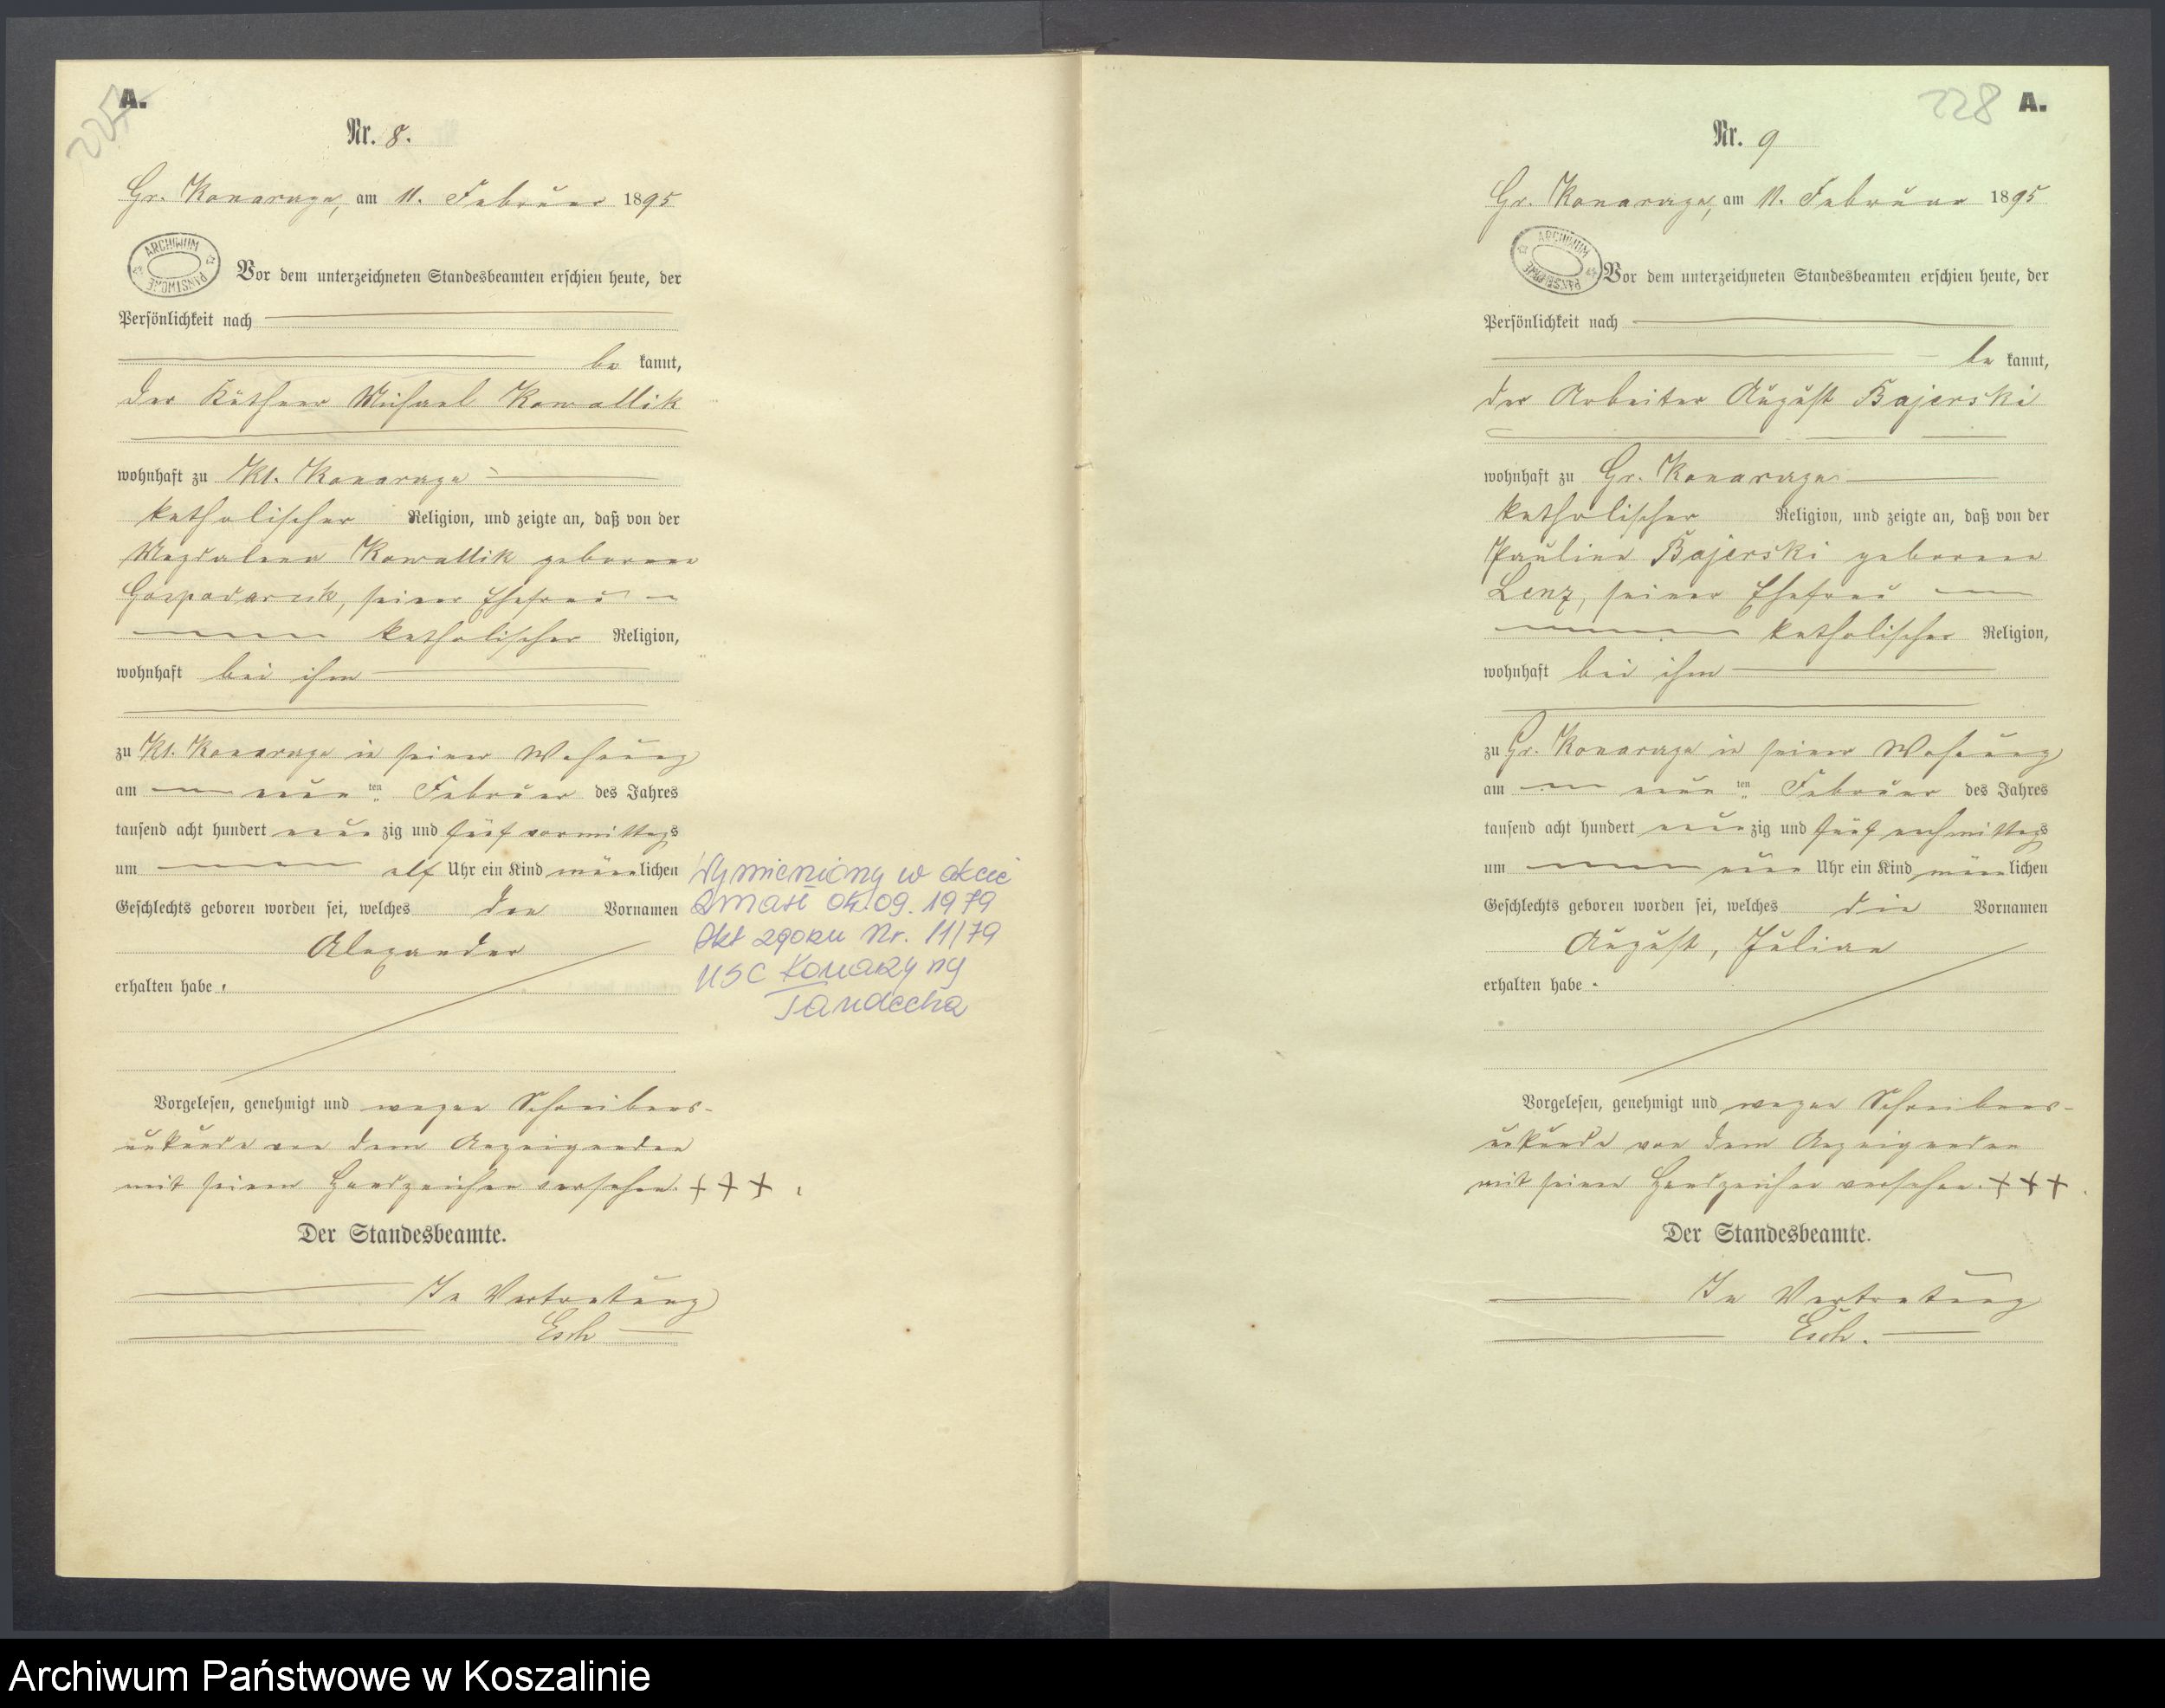 225
A.
Nr. 8.
Gr. Konarczyn, am 11. Februar 1895
ARCHIWUM PAŃSTWOWE
Vor dem unterzeichneten Standesbeamten erschien heute, der
Persönlichkeit nach
be kannt,
der Käthner Michael Kowallik
wohnhaft zu Kl. Konarczyn
katholischer Religion, und zeigte an, daß von der
Magdalena Kowallik geborene
Gospodarek, seiner Ehefrau
katholischer Religion,
wohnhaft bei ihm
zu Kl. Konarczyn in seiner Wohnung
am neun ten Februar des Jahres
tausend acht hundert neun zig und fünf vormittags
um elf Uhr ein Kind männlichen
Geschlechts geboren worden sei, welches den Vornamen
Alexander
erhalten habe.
Wymieniony w akcie
zmarł 04.09.1979
Akt zgonu Nr. 11/79
USC Konarzyny
Vorgelesen, genehmigt und wegen Schreibens-
unkunde von dem Anzeigenden
mit seinem Handzeichen versehen. + + +
Der Standesbeamte.
In Vertretung
Esch
228 A.
Nr. 9
Gr. Konarczyn, am 11. Februar 1895
ARCHIWUM PAŃSTWOWE
Vor dem unterzeichneten Standesbeamten erschien heute, der
Persönlichkeit nach
be kannt,
der Arbeiter August Bajerski
wohnhaft zu Gr. Konarczyn
katholischer Religion, und zeigte an, daß von der
Pauline Bajerski geborene
Lenz, seiner Ehefrau
katholischer Religion,
wohnhaft bei ihm
zu Gr. Konarczyn in seiner Wohnung
am neun ten Februar des Jahres
tausend acht hundert neun zig und fünf nachmittags
um neun Uhr ein Kind männlichen
Geschlechts geboren worden sei, welches die Vornamen
August, Julian
erhalten habe.
Vorgelesen, genehmigt und wegen Schreibens-
unkunde von dem Anzeigenden
mit seinem Handzeichen versehen. + + +
Der Standesbeamte.
In Vertretung
Esch.
Archiwum Państwowe w Koszalinie